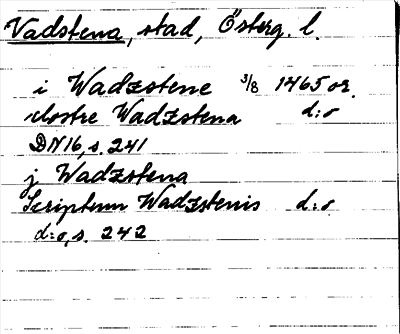 Vadstena, stad, Österg. l.
i Wadzstene 3/8 1465 or.
clostre Wadzstena d:o
DN16, s. 241
j Wadzstena
Scriptum Wadzstenis d:o
d:o, s. 242